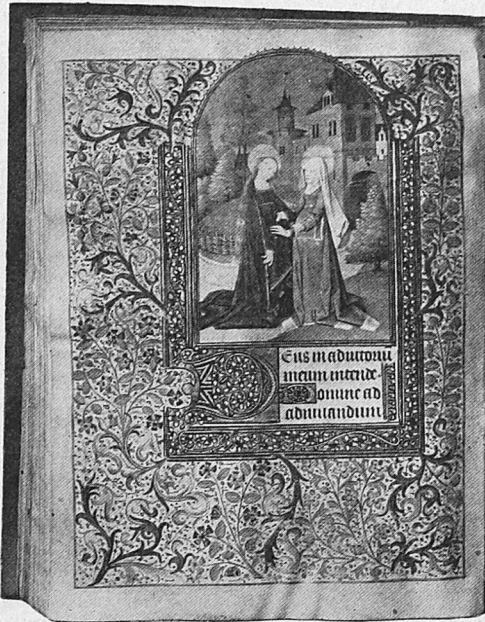 DEus in adiutoriu
meum intende.
Domine ad
adiuuandum